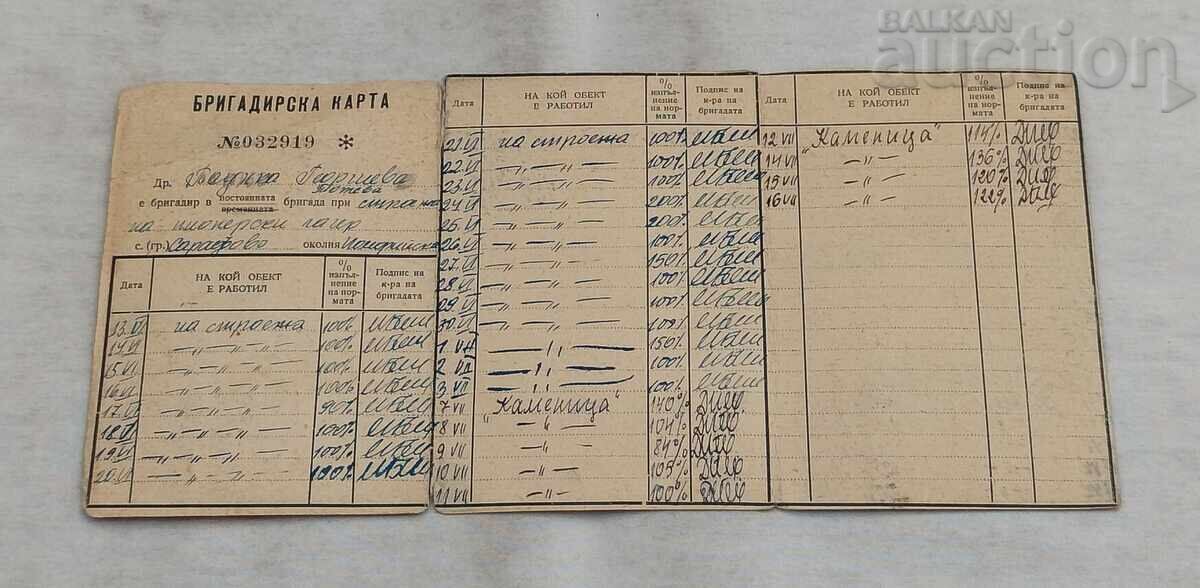 BALKAN
auction
БРИГАДИРСКА КАРТА
№032919 *
Др. Георгиева
е бригадир в постоянната бригада при
временната
на пионерски лагер
с. (гр.) Сарафово околия
Дата НА КОЙ ОБЕКТ Е РАБОТИЛ % изпълнение на нормата Подпис на к-ра на бригадата
13.VI на строежа 100%
14 VI —„— —„— 100%
15 VI —„— —„— 100%
16 VI —„— —„— 100%
17 VI —„— —„— 90%
18 VI —„— —„— 100%
19 VI —„— —„— 100%
20 VI —„— 100%
Дата НА КОЙ ОБЕКТ Е РАБОТИЛ % изпълнение на нормата Подпис на к-ра на бригадата
21.VI на строежа 100%
22.VI —„—„— 100%
23.VI —„—„— 100%
24 VI —„—„— 200%
25.VI —„—„— 200%
26.VI —„—„— 100%
27.VI —„—„— 150%
28 VI —„—„— 100%
29. VI —„—„— 100%
30.VI —„—„— 109%
1 VII —„— 150%
2 VII —„— 100%
3 VII —„— 100%
7 VII „Каменица" 140%
8 VII —„— 104%
9 VII —„— 84%
10 VII —„— 105%
11 VII —„— 100%
Дата НА КОЙ ОБЕКТ Е РАБОТИЛ % изпълнение на нормата Подпис на к-ра на бригадата
12 VII „Каменица" 114%
14 VII —„— 136%
15 VII —„— 120%
16 VII —„— 122%